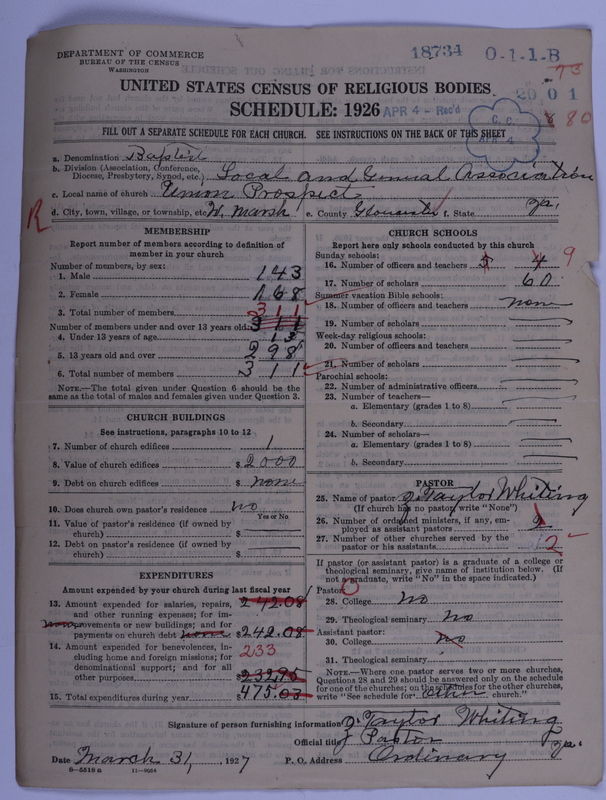 DEPARTMENT OF COMMERCE
BUREAU OF THE CENSUS
WASHINGTON
18734 0-1-1-B
73
20 0 1
880
UNITED STATES CENSUS OF RELIGIOUS BODIES
SCHEDULE: 1926
APR 4 - Rec'd
C. C.
APR 4
FILL OUT A SEPARATE SCHEDULE FOR EACH CHURCH. SEE INSTRUCTIONS ON THE BACK OF THIS SHEET
a. Denomination Baptist
b. Division (Association, Conference, Diocese, Presbytery, Synod, etc.) Local and General Association
c. Local name of church Union Prospect
d. City, town, village, or township, etc. W. Marsh e. County Gloucester f. State Va.
R
MEMBERSHIP
Report number of members according to definition of
member in your church
Number of members, by sex:
1. Male 143
2. Female 168
3. Total number of members 311
Number of members under and over 13 years old: 311
4. Under 13 years of age 13
5. 13 years old and over 298
6. Total number of members 311
NOTE.—The total given under Question 6 should be
same as the total of males and females given under Question 3.
CHURCH BUILDINGS
See instructions, paragraphs 10 to 12
7. Number of church edifices 1
8. Value of church edifices $ 2000
9. Debt on church edifices $ none
10. Does church own pastor's residence no
Yes or No
11. Value of pastor's residence (if owned by
church) $
12. Debt on pastor's residence (if owned by
church) $
EXPENDITURES
Amount expended by your church during last fiscal year
13. Amount expended for salaries, repairs, 242.08
and other running expenses; for im-
provements or new buildings; and for
payments on church debt none $242.08
14. Amount expended for benevolences, in- 233
cluding home and foreign missions; for
denominational support; and for all
other purposes $232.95
15. Total expenditures during year $475.03
CHURCH SCHOOLS
Report here only schools conducted by this church
Sunday schools:
16. Number of officers and teachers 5 4 9
17. Number of scholars 60
Summer vacation Bible schools:
18. Number of officers and teachers none
19. Number of scholars
Week-day religious schools:
20. Number of officers and teachers
21. Number of scholars
Parochial schools:
22. Number of administrative officers
23. Number of teachers—
a. Elementary (grades 1 to 8)
b. Secondary
24. Number of scholars—
a. Elementary (grades 1 to 8)
b. Secondary
PASTOR
25. Name of pastor J. Taylor Whiting
(If church has no pastor, write "None")
26. Number of ordained ministers, if any, em-
ployed as assistant pastors
27. Number of other churches served by the
pastor or his assistants 2
If pastor (or assistant pastor) is a graduate of a college or
theological seminary, give name of institution below. (If
not a graduate, write "No" in the space indicated.)
Pastor: 0
28. College no
29. Theological seminary no
Assistant pastor:
30. College no
31. Theological seminary
NOTE.—Where one pastor serves two or more churches,
Questions 28 and 29 should be answered only on the schedule
for one of the churches; on the schedules for the other churches,
write "See schedule for church."
Signature of person furnishing information J. Taylor Whiting
Official title Pastor
Date March 31, 1927 P. O. Address Ordinary Va.
8-5518 a 11-9664